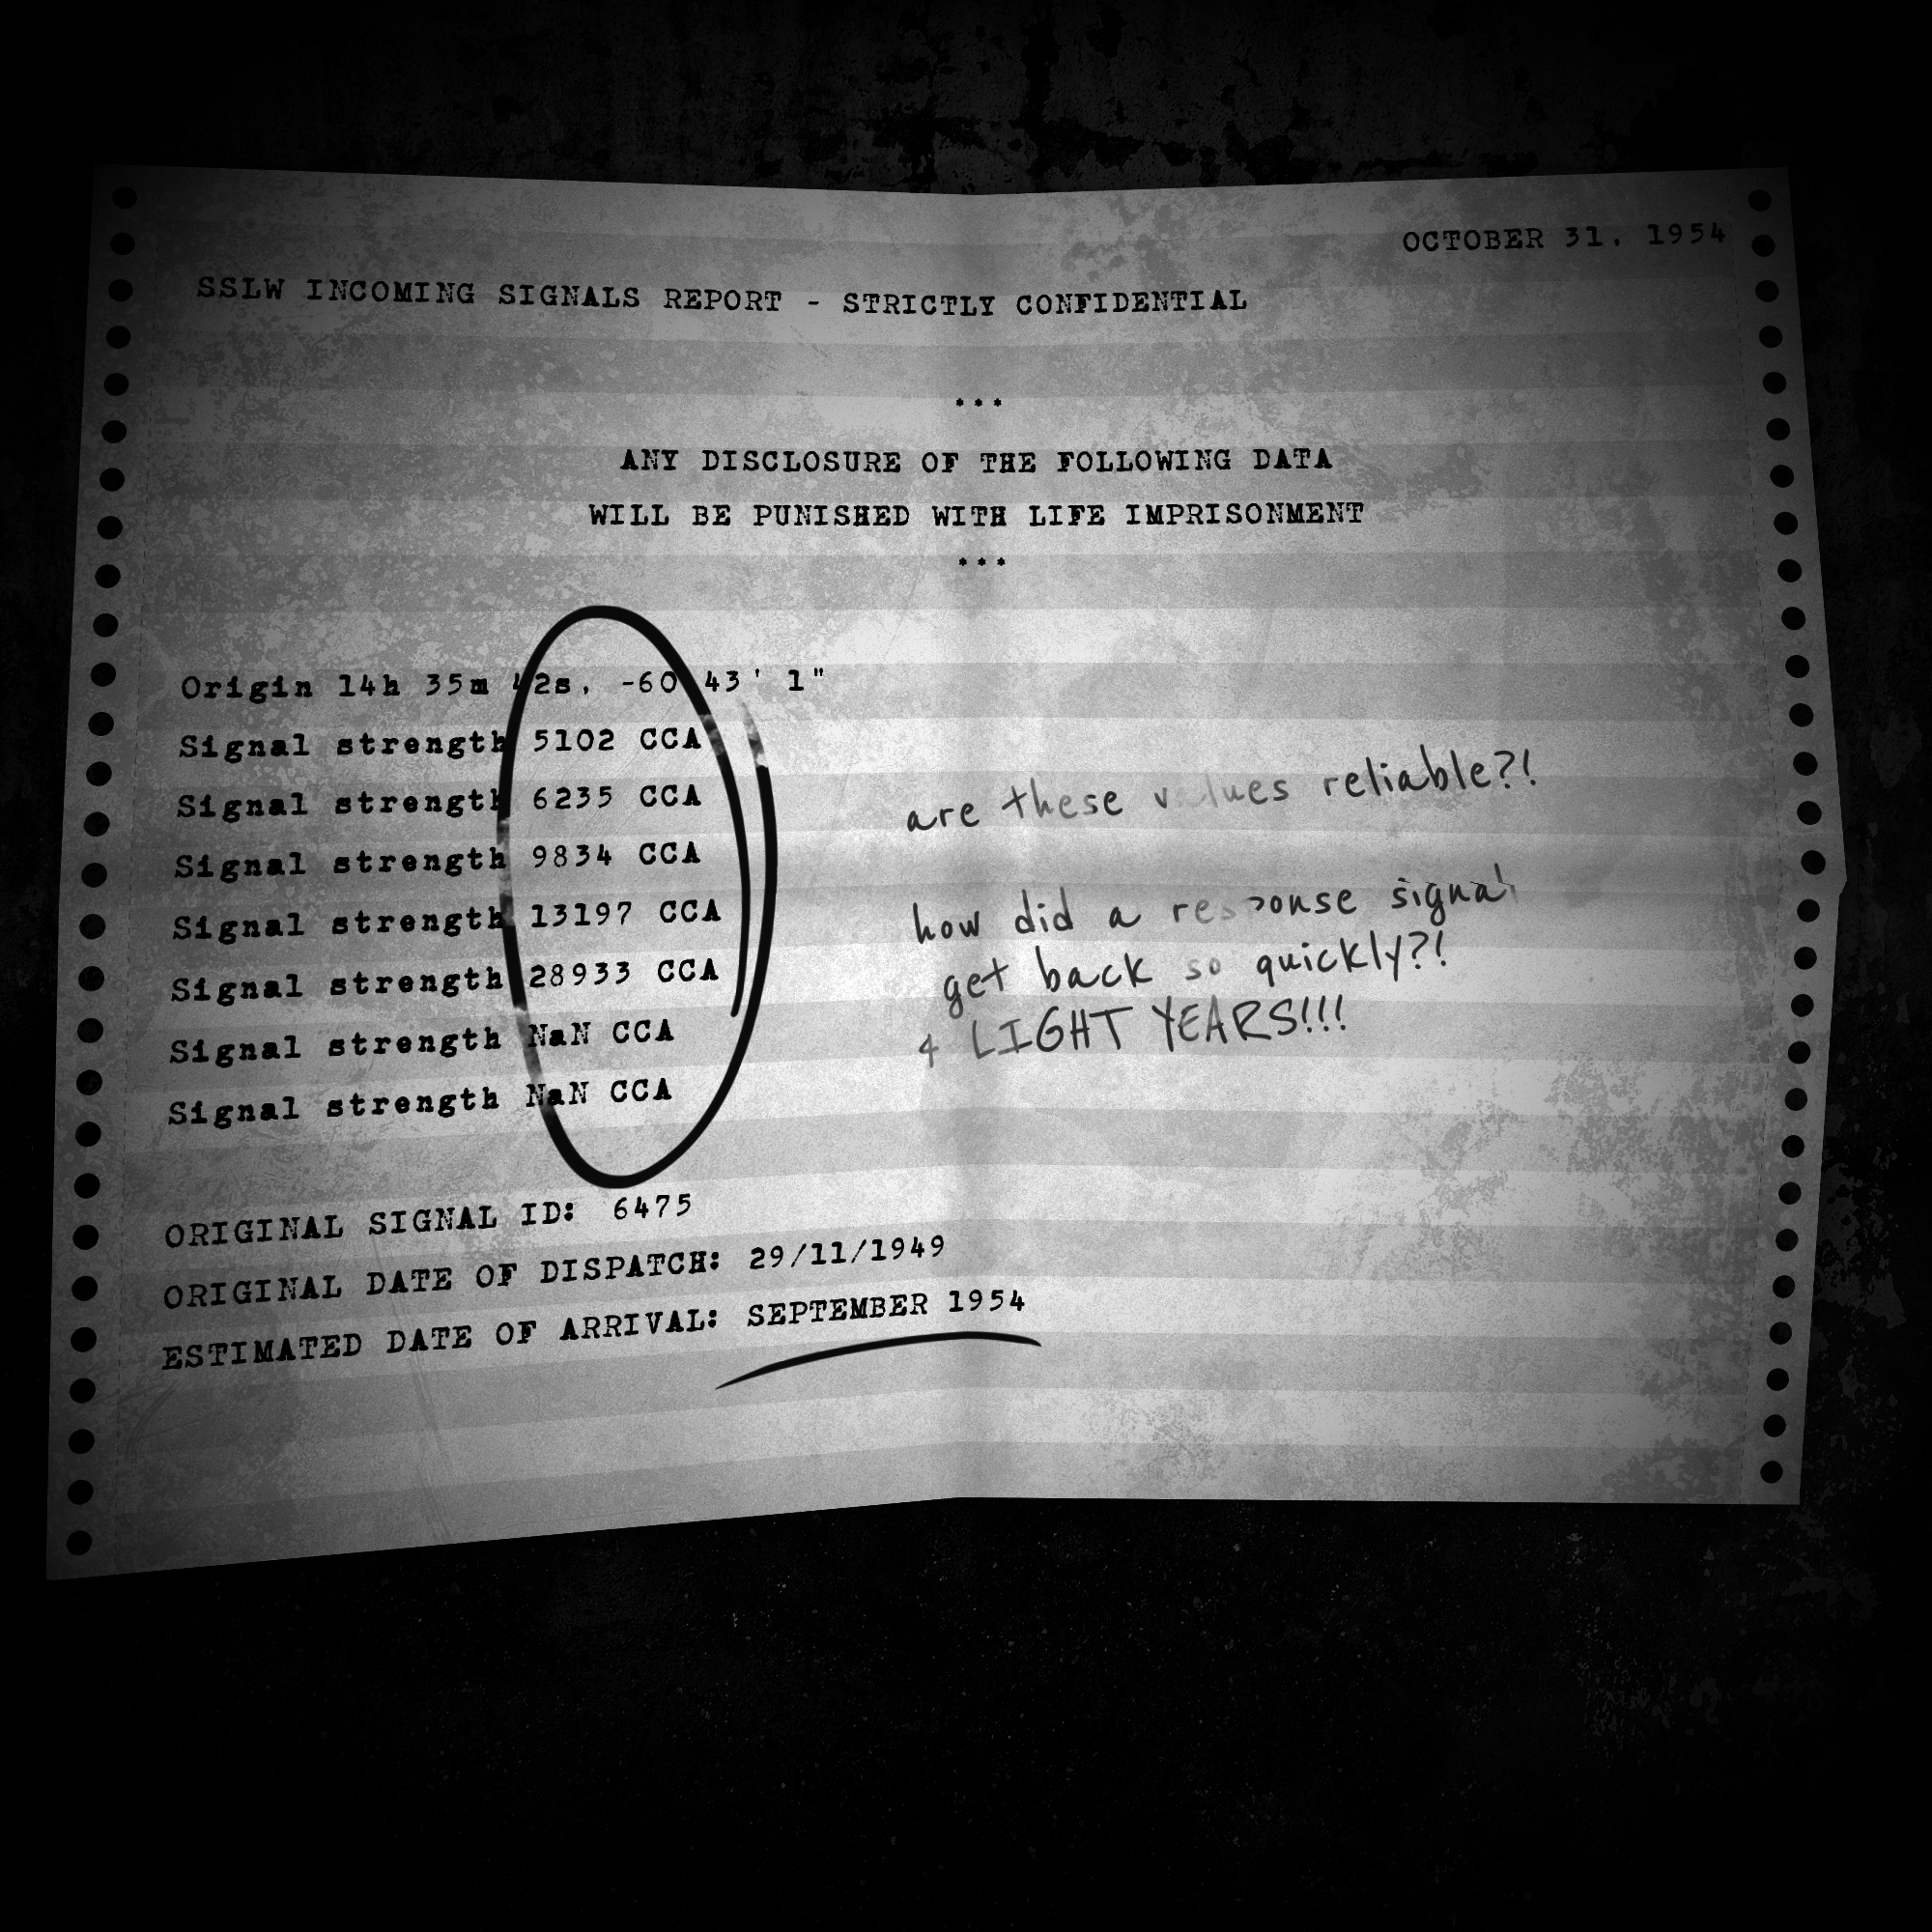 OCTOBER 31, 1954
SSLW INCOMING SIGNALS REPORT - STRICTLY CONFIDENTIAL
***
ANY DISCLOSURE OF THE FOLLOWING DATA
WILL BE PUNISHED WITH LIFE IMPRISONMENT
***
Origin 14h 35m 42s, -60 43' 1"
Signal strength 5102 CCA
Signal strength 6235 CCA
Signal strength 9834 CCA
Signal strength 13197 CCA
Signal strength 28933 CCA
Signal strength NaN CCA
Signal strength NaN CCA
are these values reliable?!
how did a response signal
get back so quickly?!
4 LIGHT YEARS!!!
ORIGINAL SIGNAL ID: 6475
ORIGINAL DATE OF DISPATCH: 29/11/1949
ESTIMATED DATE OF ARRIVAL: SEPTEMBER 1954